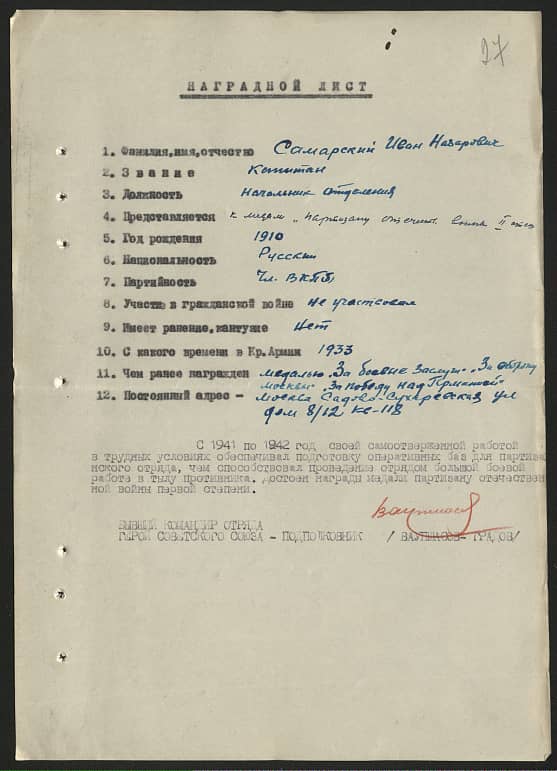 27
НАГРАДНОЙ ЛИСТ
1. Фамилия,имя,отчество Самарский Иван Назарович
2. Звание Капитан
3. Должность Начальник отделения
4. Представляется к медали „партизану отечеств. войны II степ
5. Год рождения 1910
6. Национальность Русский
7. Партийность Чл. ВКПб
8. Участие в гражданской войне не участвовал
9. Имеет ранение,кантузие Нет
10. С какого времени в Кр.Армии 1933
11. Чем ранее награжден медалью „За боевые заслуги" „За оборону
Москвы" „За победу над Германией"
12. Постоянний адрес - Москва Садово-Сухаревская ул
дом 8/12 кв-118
С 1941 по 1942 год своей самоотверженной работой
в трудных условиях обеспечивал подготовку оперативных баз для партиза
нского отряда, чем способствовал проведение отрядом большой боевой
работе в тылу противника. достоен награды медали партизану отечествен
ной войны первой степени.
Ваупшасов
БЫВШИЙ КОМАНДИР ОТРЯДА
ГЕРОЙ СОВЕТСКОГО СОЮЗА - ПОДПОЛКОВНИК / ВАУПШАСОВ- ГРАДОВ/